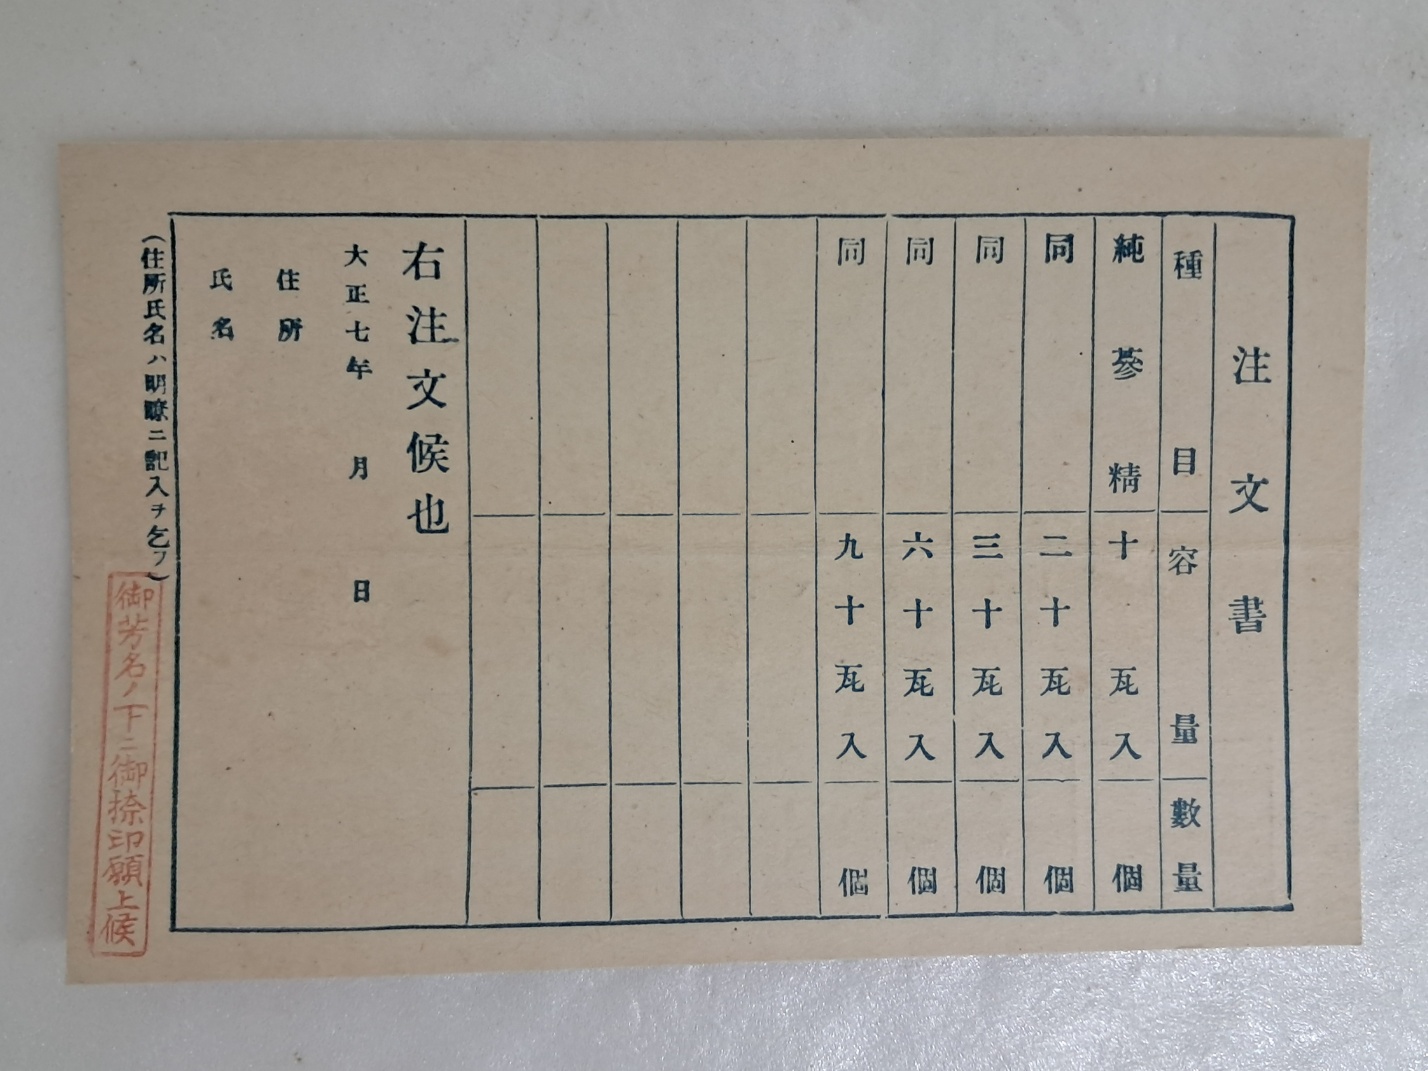 注文書
種目 容量 數量
純蔘精 十瓦入 個
同 二十瓦入 個
同 三十瓦入 個
同 六十瓦入 個
同 九十瓦入 個
右注文候也
大正七年 月 日
住所
氏名
(住所氏名ハ明瞭ニ記入ヲ乞フ)
御芳名ノ下ニ御捺印願上候